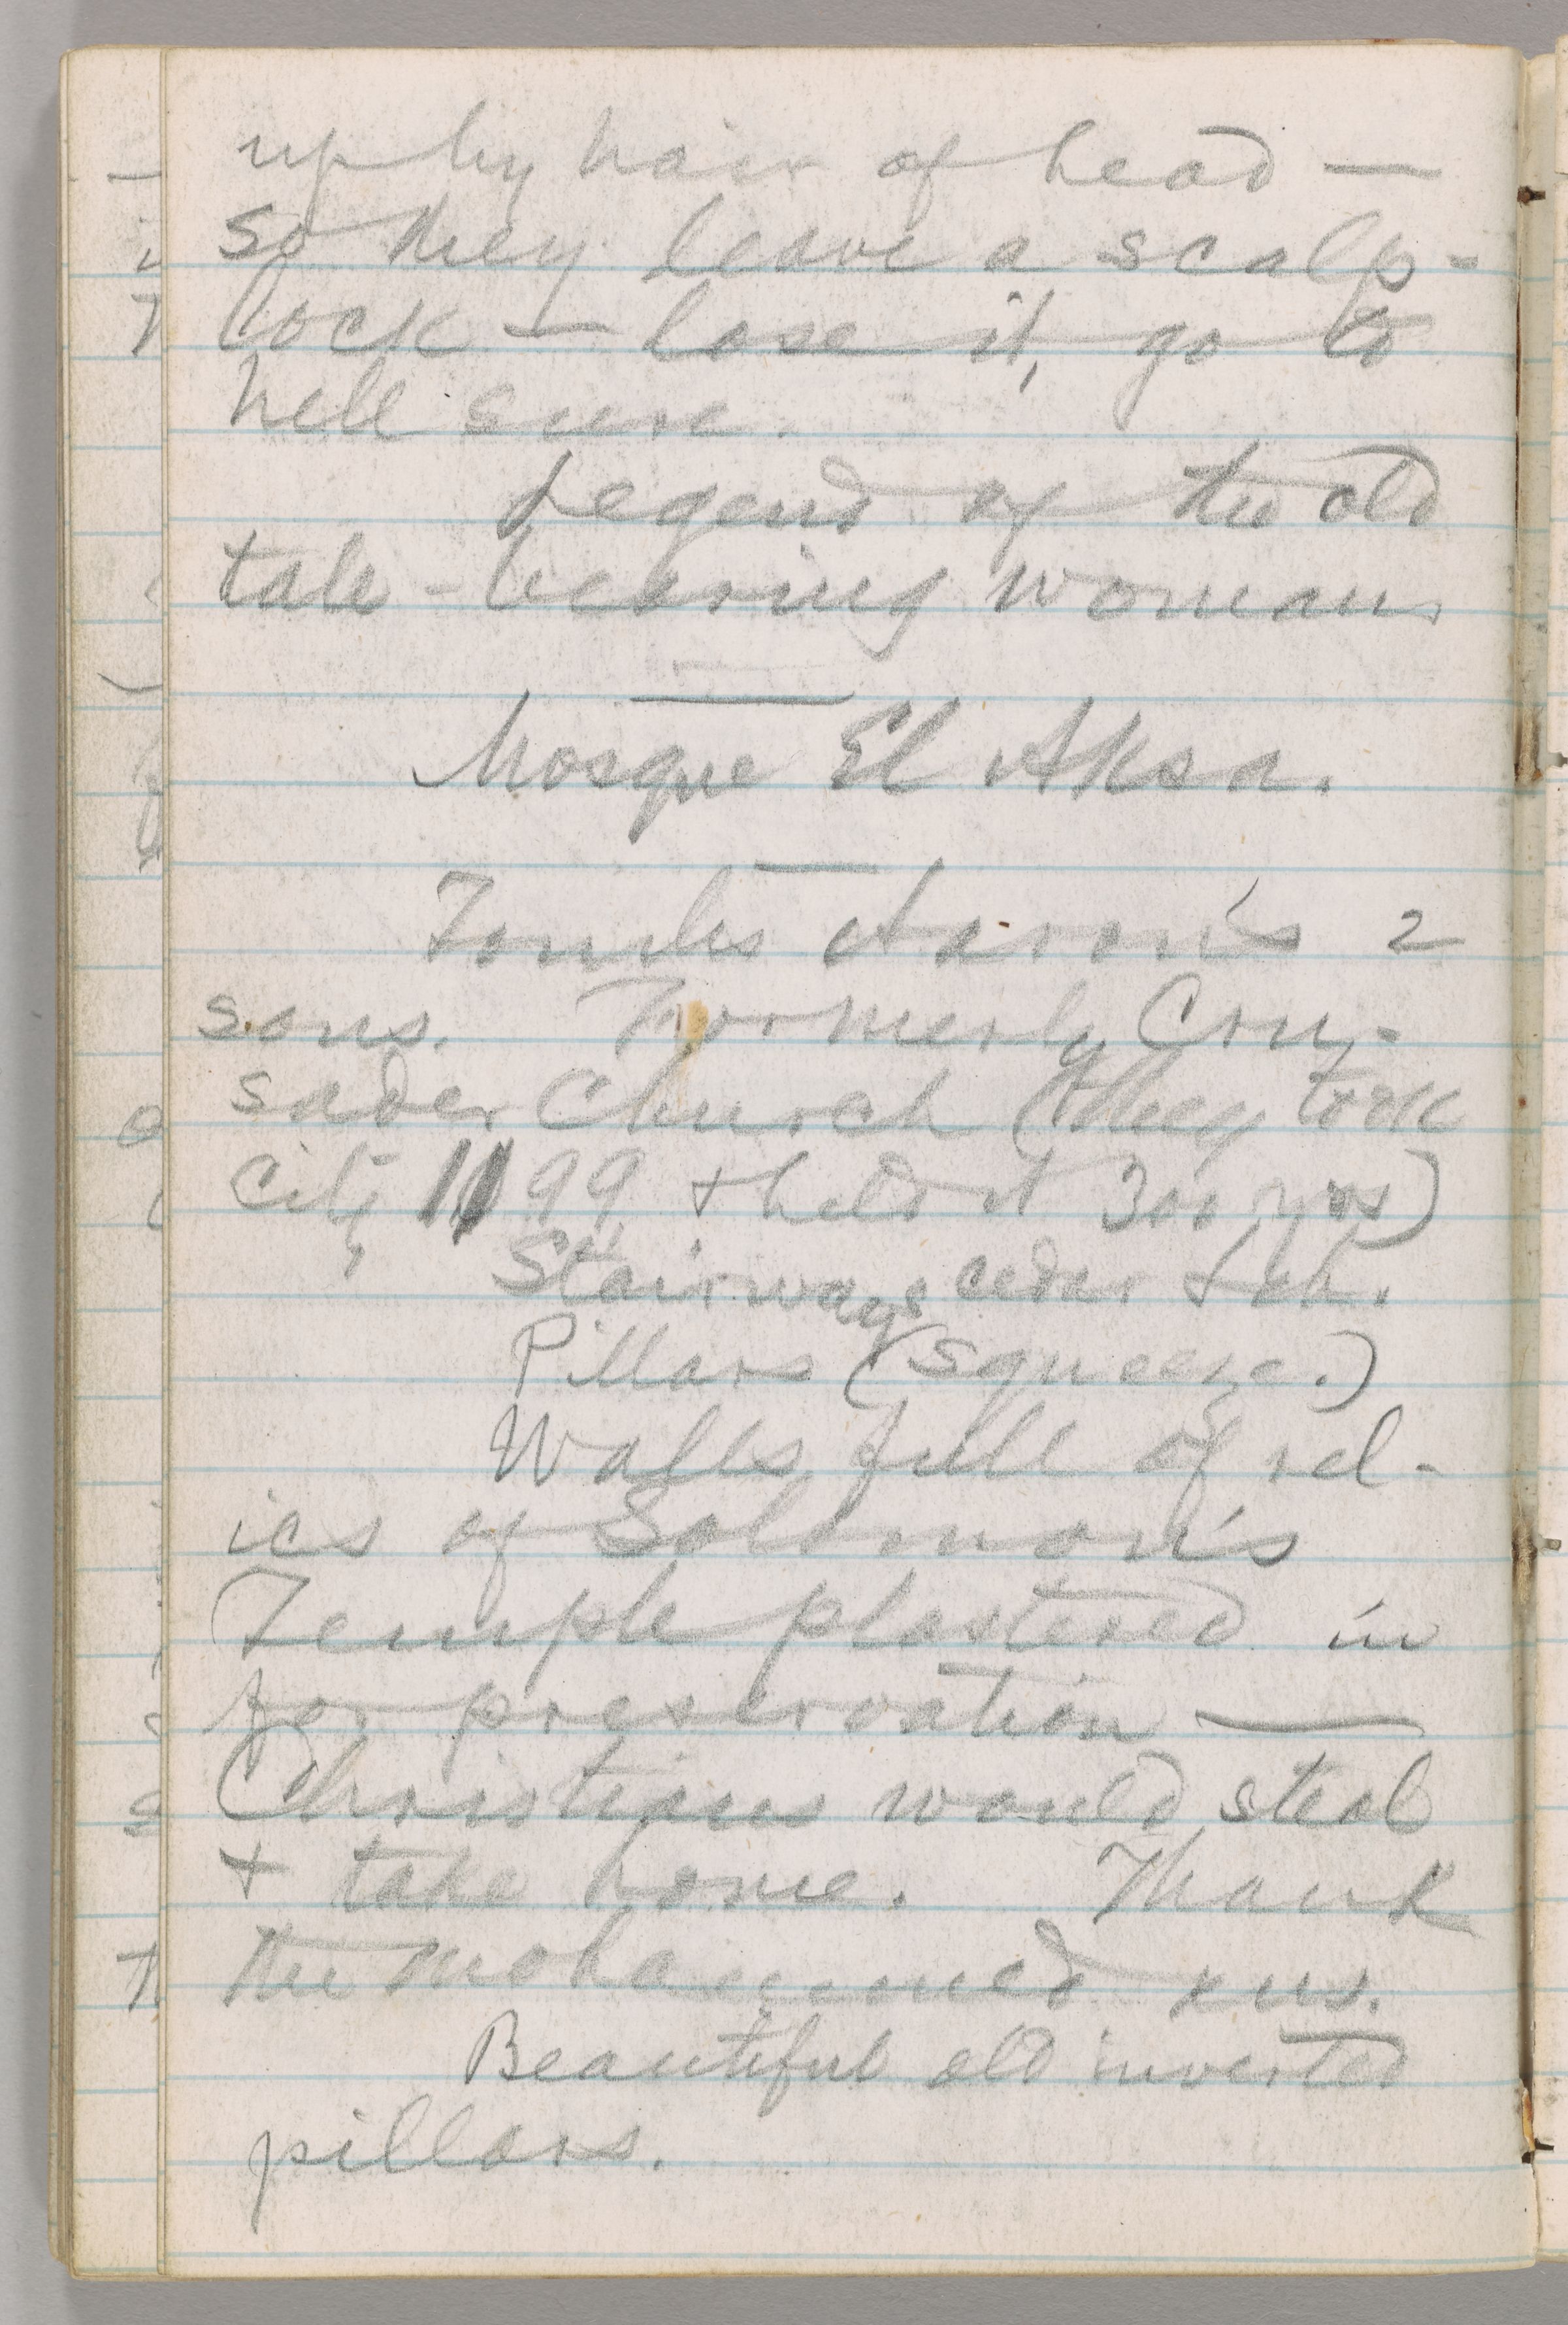 up by hair of head —
so they leave a scalp-
lock — lose it, go to
hell sure.
Legend of the old
tale-bearing woman.
Mosque El Aksa.
Tombs Aaron's 2
sons. Formerly Cru-
sader Church (they took
city 1099 & held it 300 yrs)
Stairways cedar &
Pillars (squeeze.)
Walls full of rel-
ics of Solomon's
Temple plastered in
for preservation —
Christians would steal
& take home. Thank
the Mohammed
Beautiful old inverted
pillars.